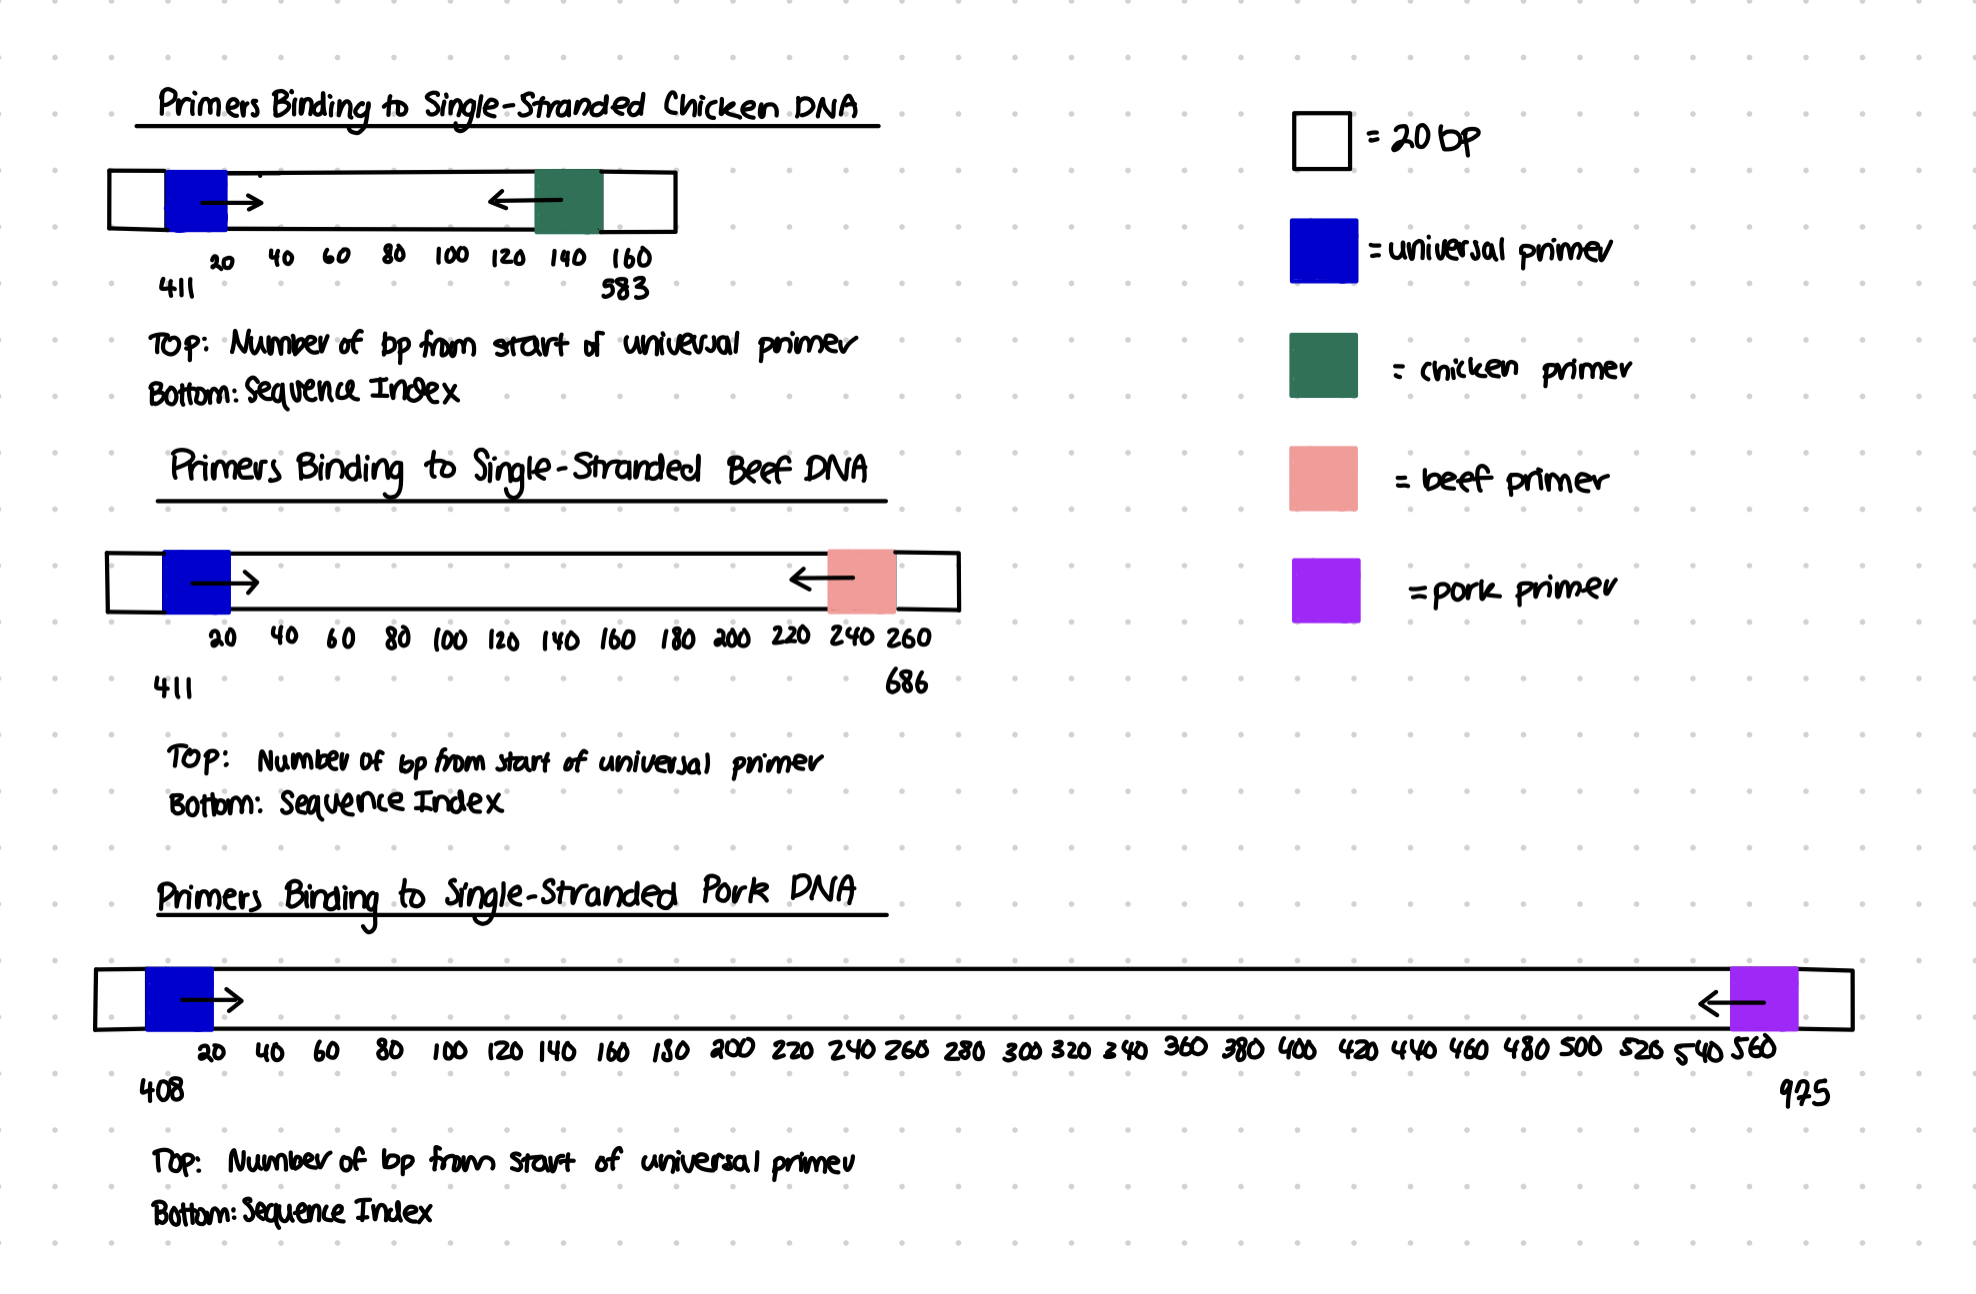 Primers Binding to Single-Stranded Chicken DNA
20 40 60 80 100 120 140 160
411 583
Top: Number of bp from start of universal primer
Bottom: Sequence Index
Primers Binding to Single-Stranded Beef DNA
20 40 60 80 100 120 140 160 180 200 220 240 260
411 686
Top: Number of bp from start of universal primer
Bottom: Sequence Index
Primers Binding to Single-Stranded Pork DNA
20 40 60 80 100 120 140 160 180 200 220 240 260 280 300 320 340 360 380 400 420 440 460 480 500 520 540 560
408 975
Top: Number of bp from start of universal primer
Bottom: Sequence Index
= 20 bp
= universal primer
= chicken primer
= beef primer
= pork primer